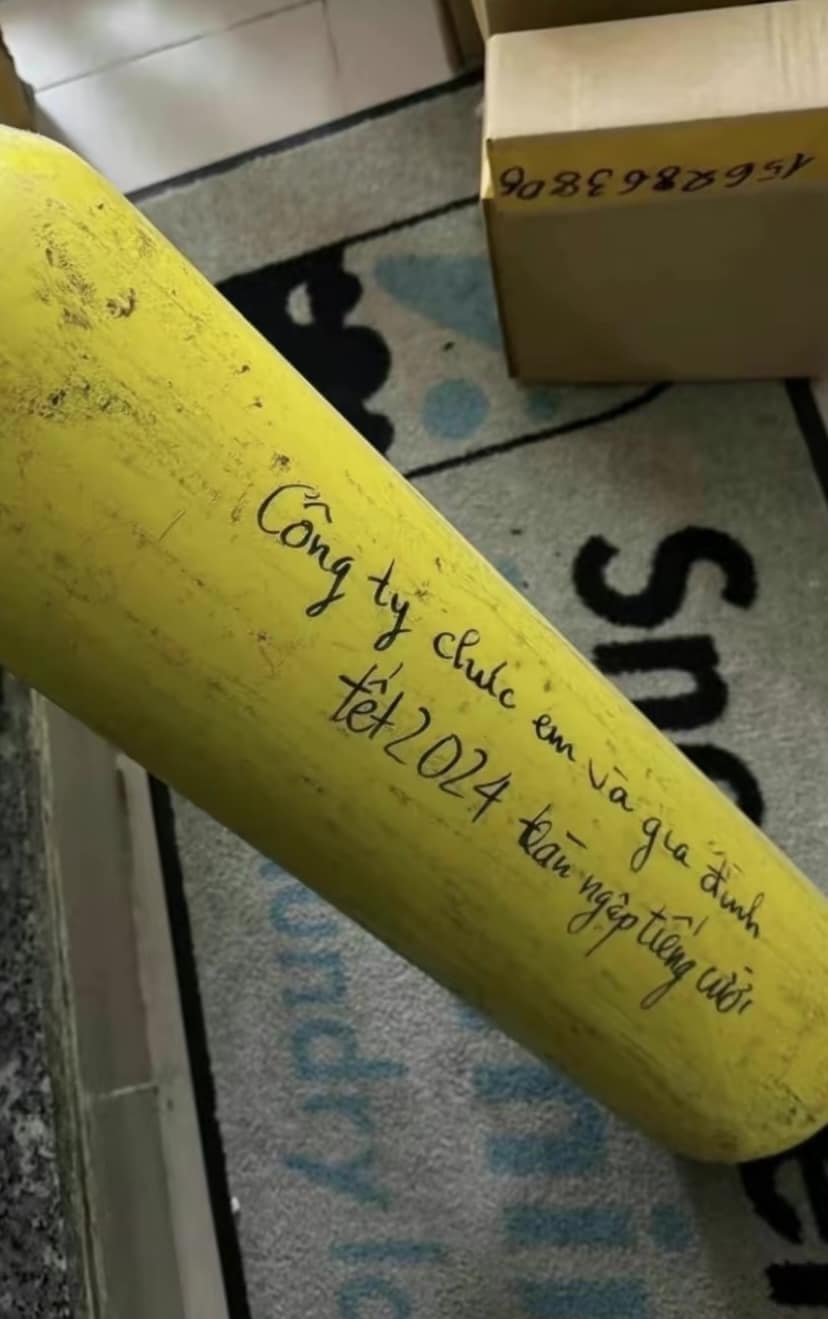 156286380
Công ty chúc em và gia đình
tết 2024 tràn ngập tiếng cười
Sne
undry